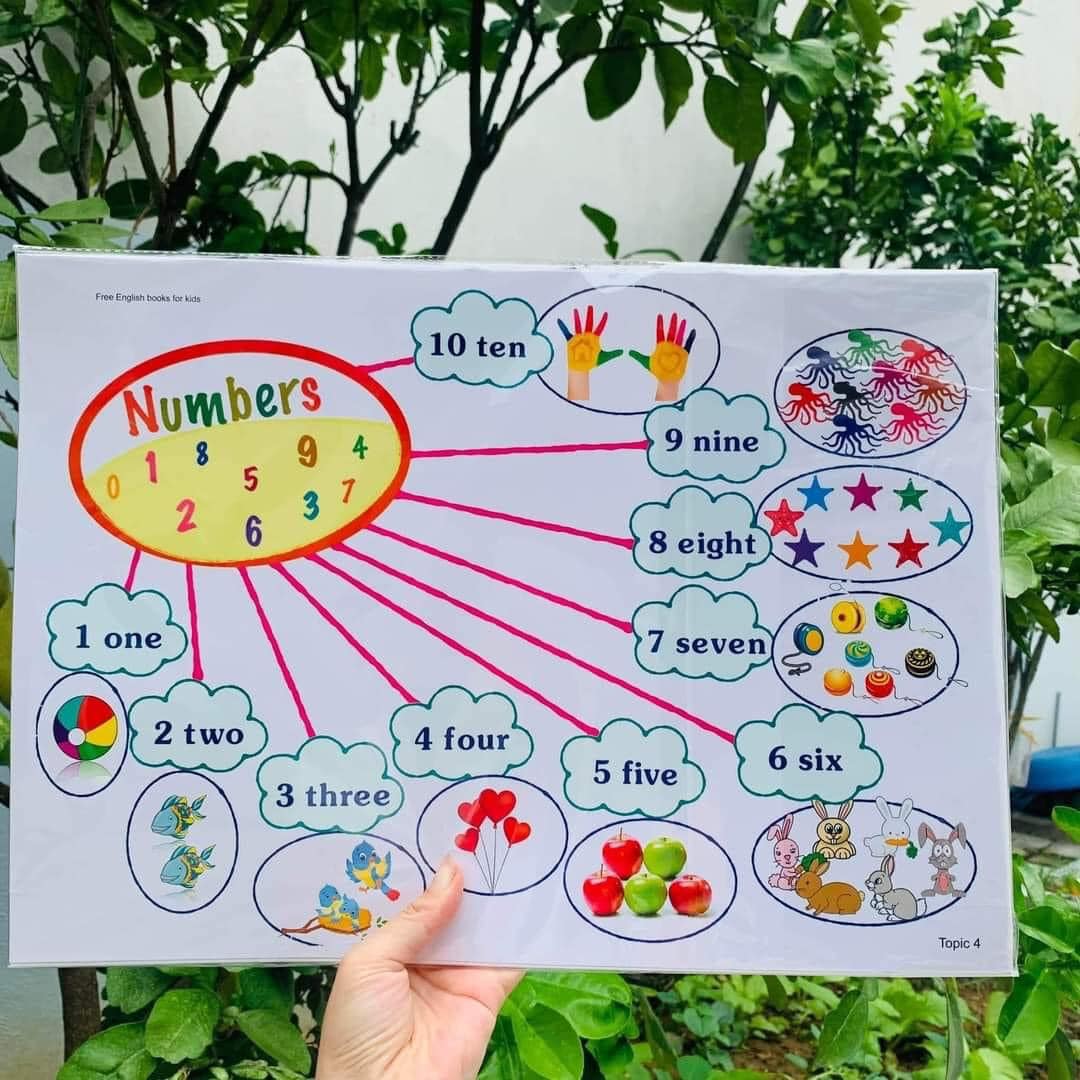 Free English books for kids
Numbers
0 1 8 5 9 4
2 6 3 7
10 ten
9 nine
8 eight
7 seven
6 six
5 five
4 four
3 three
2 two
1 one
Topic 4